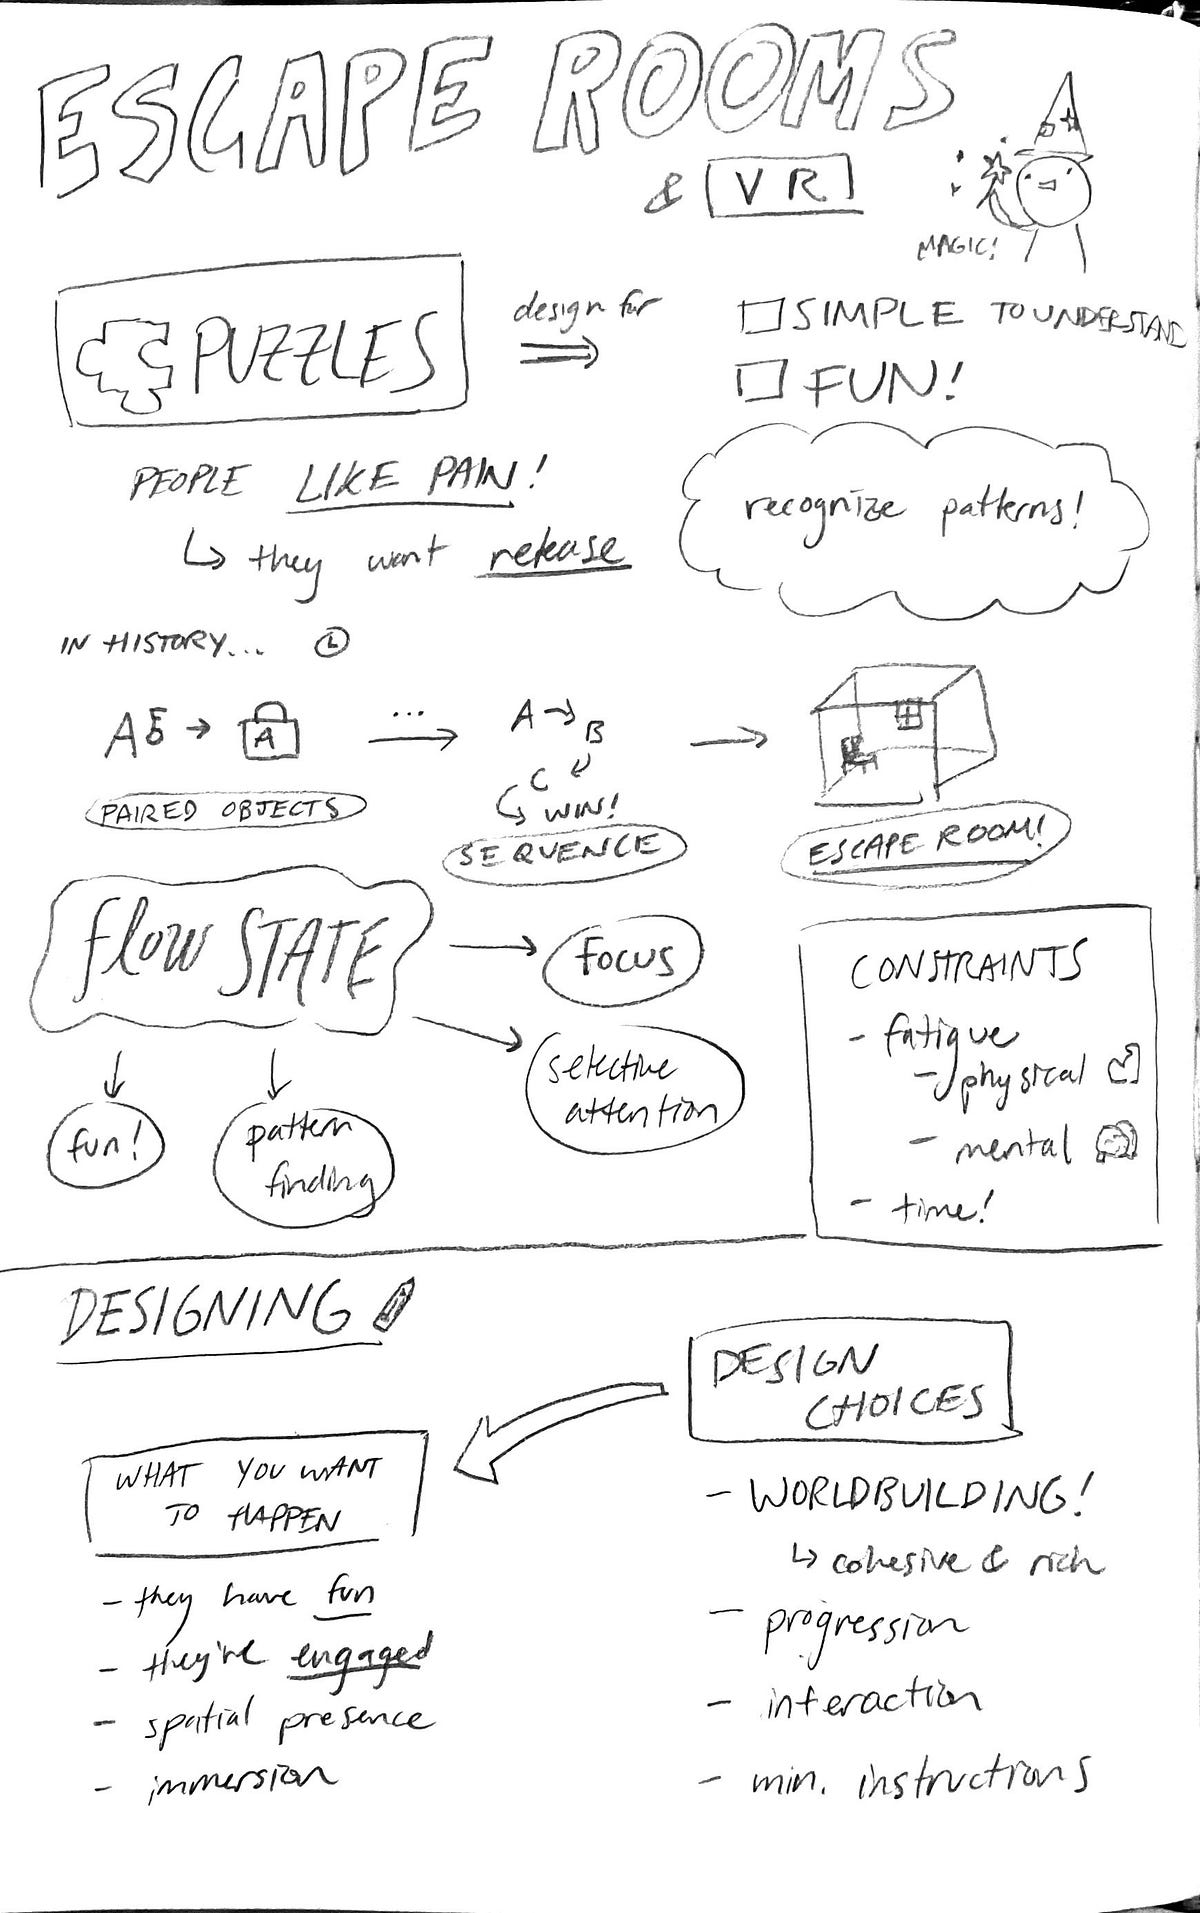 ESCAPE ROOMS
& VR
MAGIC!
PUZZLES
design for
SIMPLE TO UNDERSTAND
FUN!
PEOPLE LIKE PAIN!
they want release
recognize patterns!
IN HISTORY...
A
A
PAIRED OBJECTS
...
A → B
C
WIN!
SEQUENCE
ESCAPE ROOM!
flow STATE
FOCUS
selective
attention
fun!
pattern
finding
CONSTRAINTS
- fatigue
- physical
- mental
- time!
DESIGNING
DESIGN
CHOICES
WHAT YOU WANT
TO HAPPEN
- they have fun
- they're engaged
- spatial presence
- immersion
- WORLDBUILDING!
↳ cohesive & rich
- progression
- interaction
- min. instructions